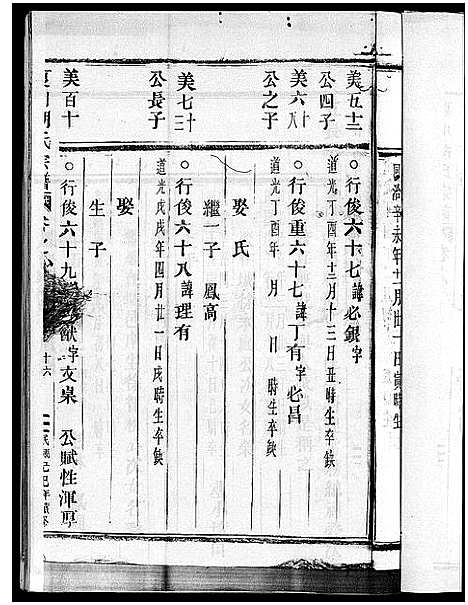 美五十二
公四子
○行俊六十七諱必銀字
道光丁酉年十二月十三日丑時生卒缺
美六十八
公之子
○行俊重六十七諱丁有字必昌
道光丁酉年 月 日 時生卒缺
娶氏
繼一子 鳳高
美七十三
公長子
○行俊六十八諱理有
道光戊戌年四月廿一日戌時生卒缺
娶
生子
美百十
○行俊六十九諱 猷字文桌 公賦性渾厚
胡氏宗譜
十六
民國己巳年續修